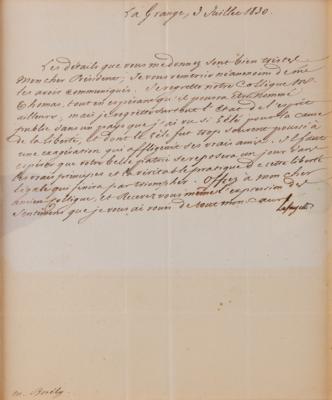 La Grange, 3 Juillet 1830.
Les détails que vous me donnez sont bien tristes
Mon cher Président; Je vous remercie néanmoins de me
les avoir communiqués. Je regrette notre Collègue Mr
Thomas, tout en espérant qu'il pourra être nommé
ailleurs, mais je regrette surtout l'état de l'esprit
public dans un pays que j'ai vu si zélé pour la cause
de la liberté, et dont le zèle fut trop souvent poussé à
une exagération qui affligeait ses vrais amis. Il faut
espérer que votre belle patrie se reposera un jour dans
les vrais principes et la véritable pratique de cette liberté
légale qui finira par triompher. Offrez à mon cher
ancien collègue, et Recevez vous même l'expression des
sentimens que je vous ai voués de tout mon cœur
Lafayette
M. Borély